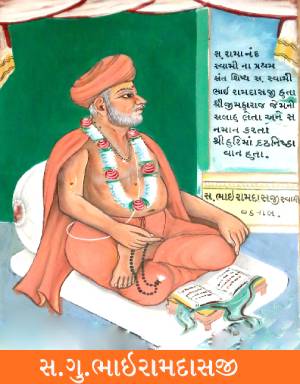 સ. રામાનંદ
સ્વામી ના પ્રથમ
સંત શિષ્ય સ. સ્વામી
ભાઈ રામદાસજી હતા
શ્રીજીમહારાજ જેમની
સલાહ લેતા અને સ
નમાન કરતાં
શ્રી હરિમાં દૃઢનિષ્ઠા
વાન હતા.
સ. ભાઇરામદાસજી સ્વામી
વડતાલ.
સ.ગુ.ભાઇરામદાસજી